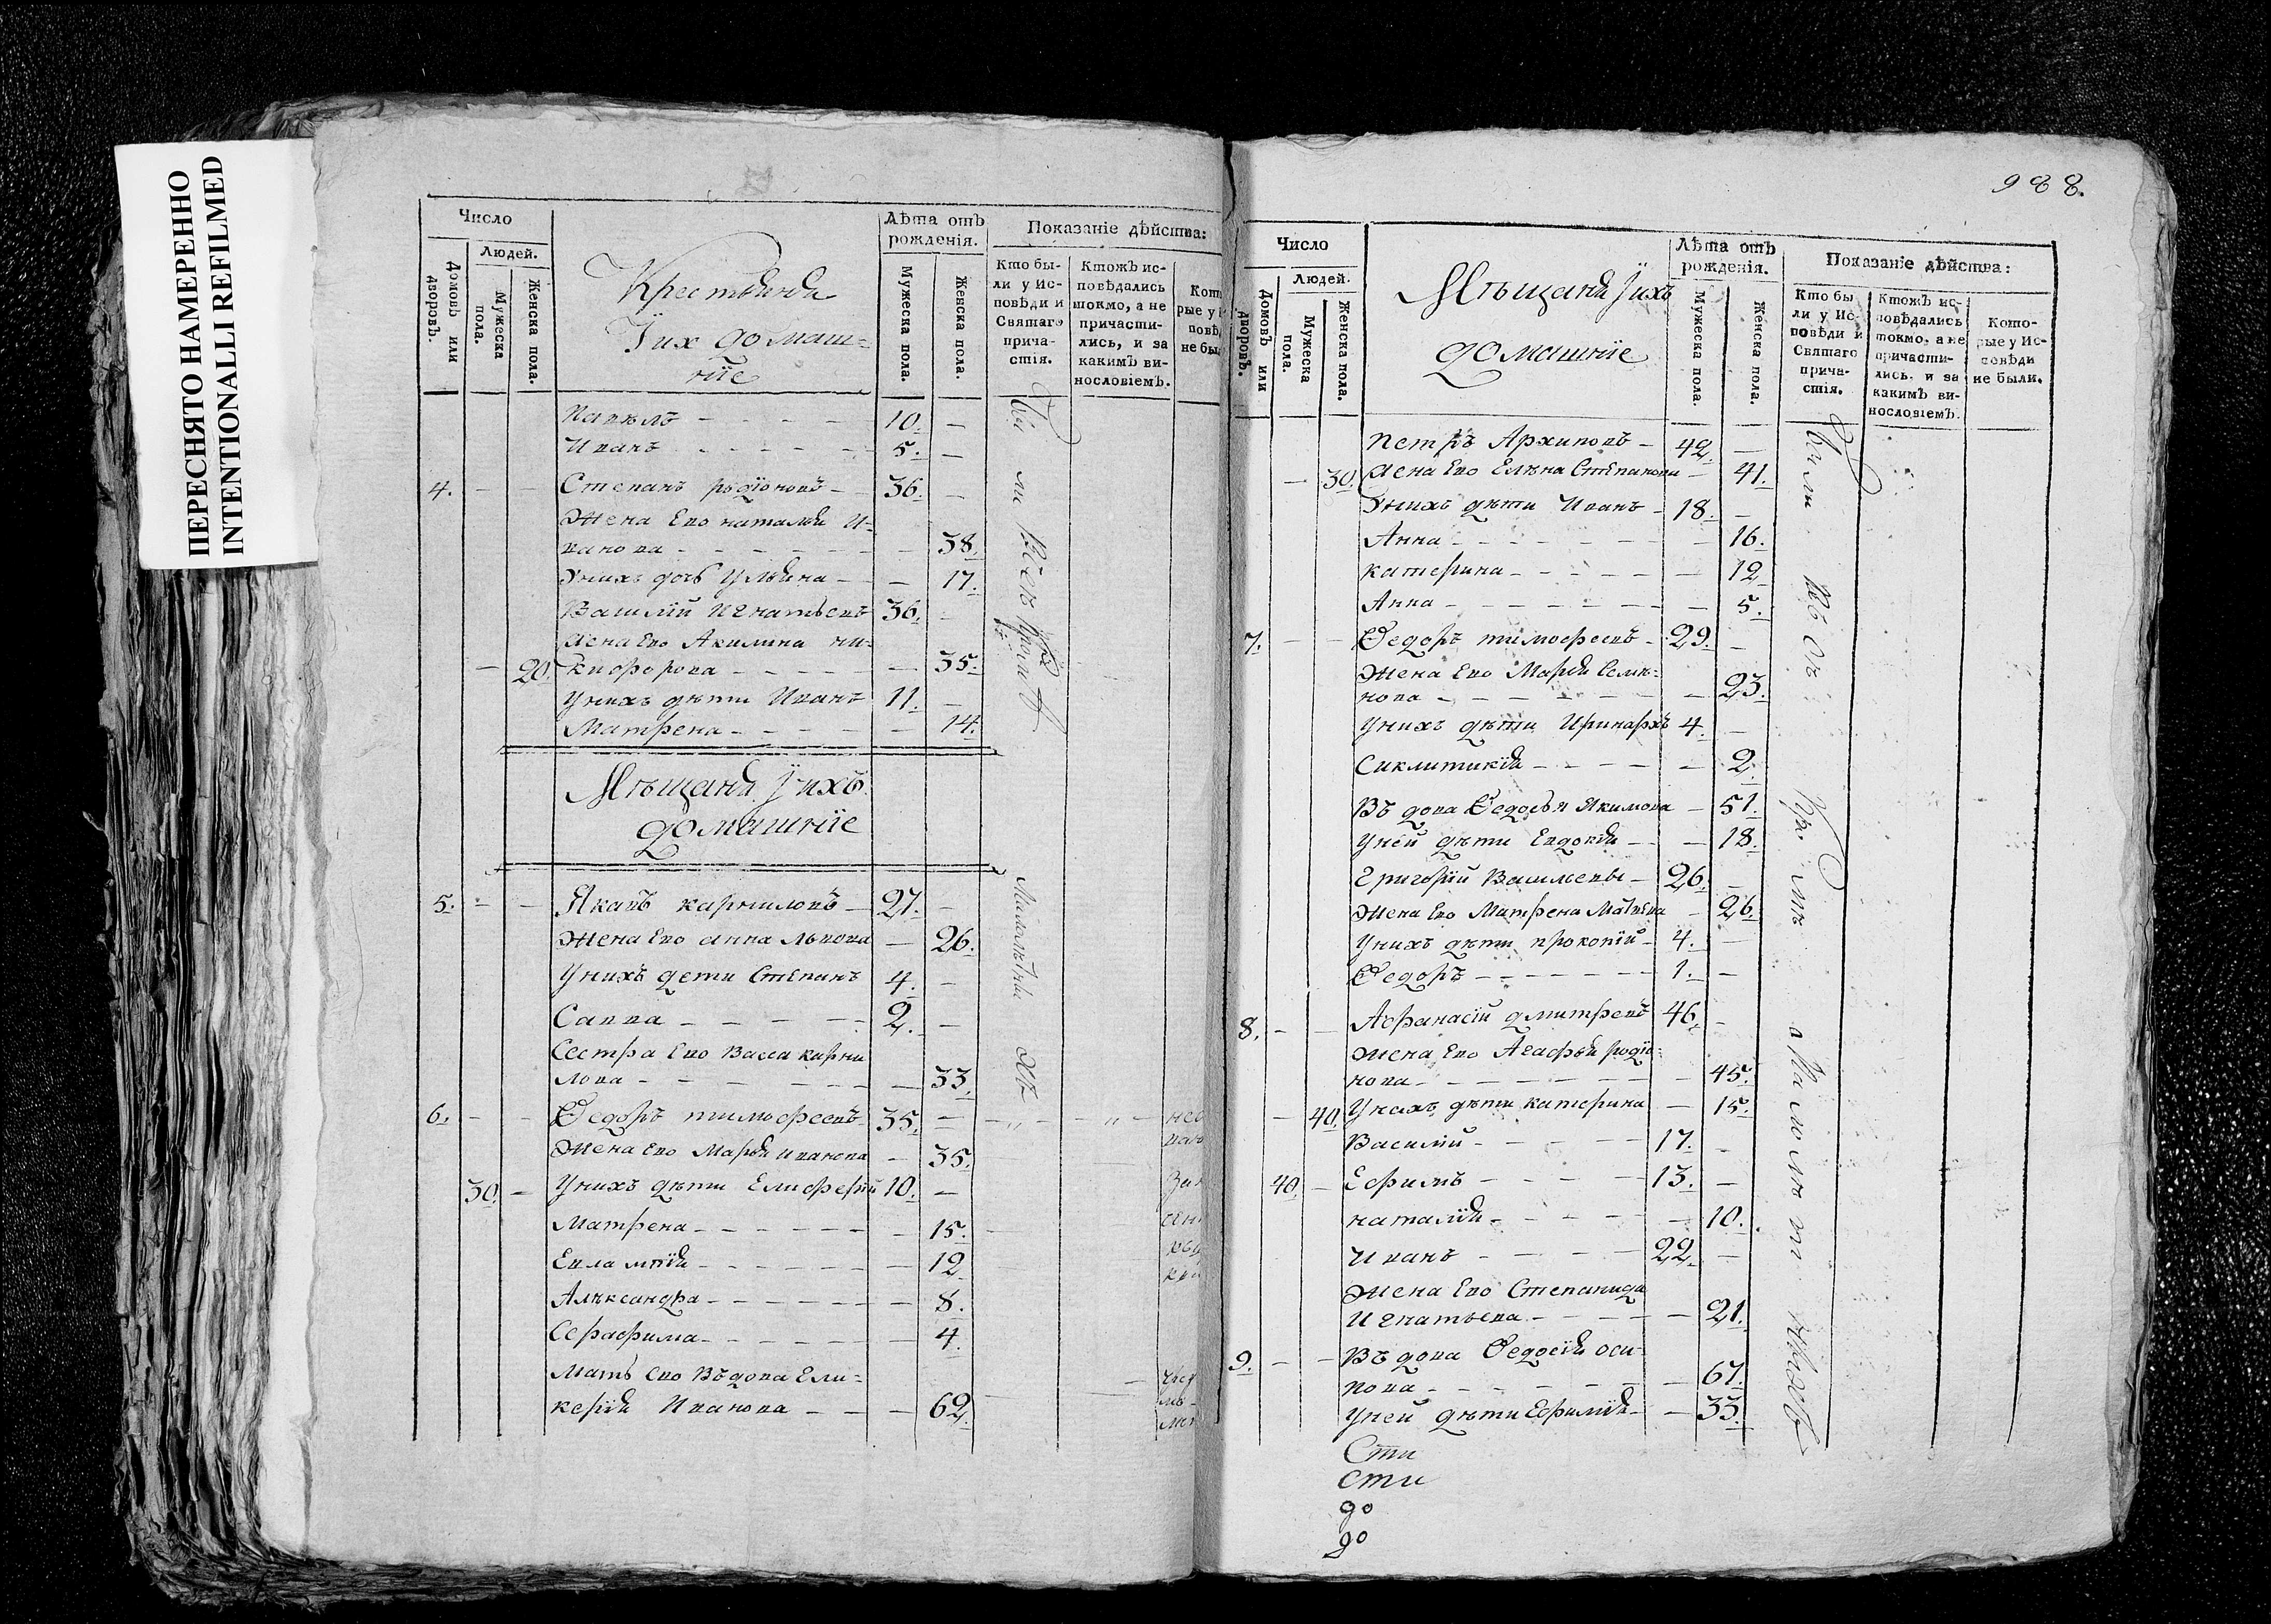 ПЕРЕСНЯТО НАМЕРЕННО
INTENTIONALLI REFILMED
Число
Домовъ или дворовъ.
Людей.
Мужеска пола.
Женска пола.
Крестьяня
Ї их домаш=
нїе
Лѣта отъ рожденія.
Мужеска пола.
Женска пола.
Показаніе дѣйства:
Кто бы-
ли у Ис-
повѣди и
Святаго
прича-
стія.
Ктожъ ис-
повѣдались
токмо, а не
причасти-
лись, и за
какимъ ви-
нословіемъ.
Павелъ - - - 10. -
Иванъ - - - 5. -
4. - - Степанъ родїоновъ - 36. -
Жена Ево наталья И=
ванова - - - 38.
Унихъ дочь Ульяна - - 17.
Василїй Игнатьевъ 36. -
Жена Ево Акилина ни=
- 20. кифорова - - - 35.
Унихъ дѣти Иванъ 11. -
Матрена - - - 14.
Мѣщаня Ї ихъ
домашнїе
5. - - Якавъ карниловъ - 27. -
Жена Ево анна Львова - 26.
Унихъ дети Степанъ 4. -
Савва - - - 2. -
Сестра Ево Васса карни
лова - - - 33.
6. - - Ѳедоръ тимофеевъ 35. -
Жена Ево Марья иванова - 35.
30. - Унихъ дѣти Елиферїй 10. -
Матрена - - - 15.
Евлампїя - - - 12.
Алѣксандра - - - 8.
Серафима - - - 4.
Мать Ево Въдова Гли=
керїя Иванова - - - 62.
Были Всѣ у прич
Малолѣтны хъ
988.
Число
Домовъ или дворовъ.
Людей.
Мужеска пола.
Женска пола.
Мѣщаня Ї ихъ
домашнїе
Лѣта отъ рожденія.
Мужеска пола.
Женска пола.
Показаніе дѣйства:
Кто бы
ли у Ис-
повѣди и
Святаго
прича-
стія.
Ктожъ ис-
повѣдались
токмо, а не
причасти-
лись, и за
какимъ ви-
нословіемъ.
Кото-
рые у Ис-
повѣди
не были.
Петръ Архиповъ - 42. -
- 30. Жена Ево Елѣна Степанова - 41.
Унихъ дѣти Иванъ - 18. -
Анна - - - 16.
катерина - - - 12
Анна - - - 5.
7. - - Ѳедоръ тимофеевъ - 29. -
Жена Ево Марья Семѣ=
нова - - - 23.
Унихъ дѣти Иринархъ 4. -
Сиклитикїя - - - 2.
Въ дова Ѳедосья Якимова - 51.
Уней дѣти Евдокїя - - 18.
Григорїй Васильевъ - 26. -
Жена Ево Матрена Матвѣва - 26.
Унихъ дѣти прокопїй - 4. -
Ѳедоръ - - - 1. -
8. - - Афанасїй дмитревъ 46. -
Жена Ево Агафья родїо=
нова - - - 45.
- 40. Унихъ дѣти катерина - 15.
Василїй - - - 17. -
40. - Ефимъ - - - 13. -
наталїя - - - 10.
Иванъ - - - 22. -
Жена Ево Степанида
Игнатьева - - - 21.
9. - - Въ дова Ѳедосїя оси-
пова - - - 67.
Уней дѣти Ефимїя - - 33.
Сти
сти
до
до